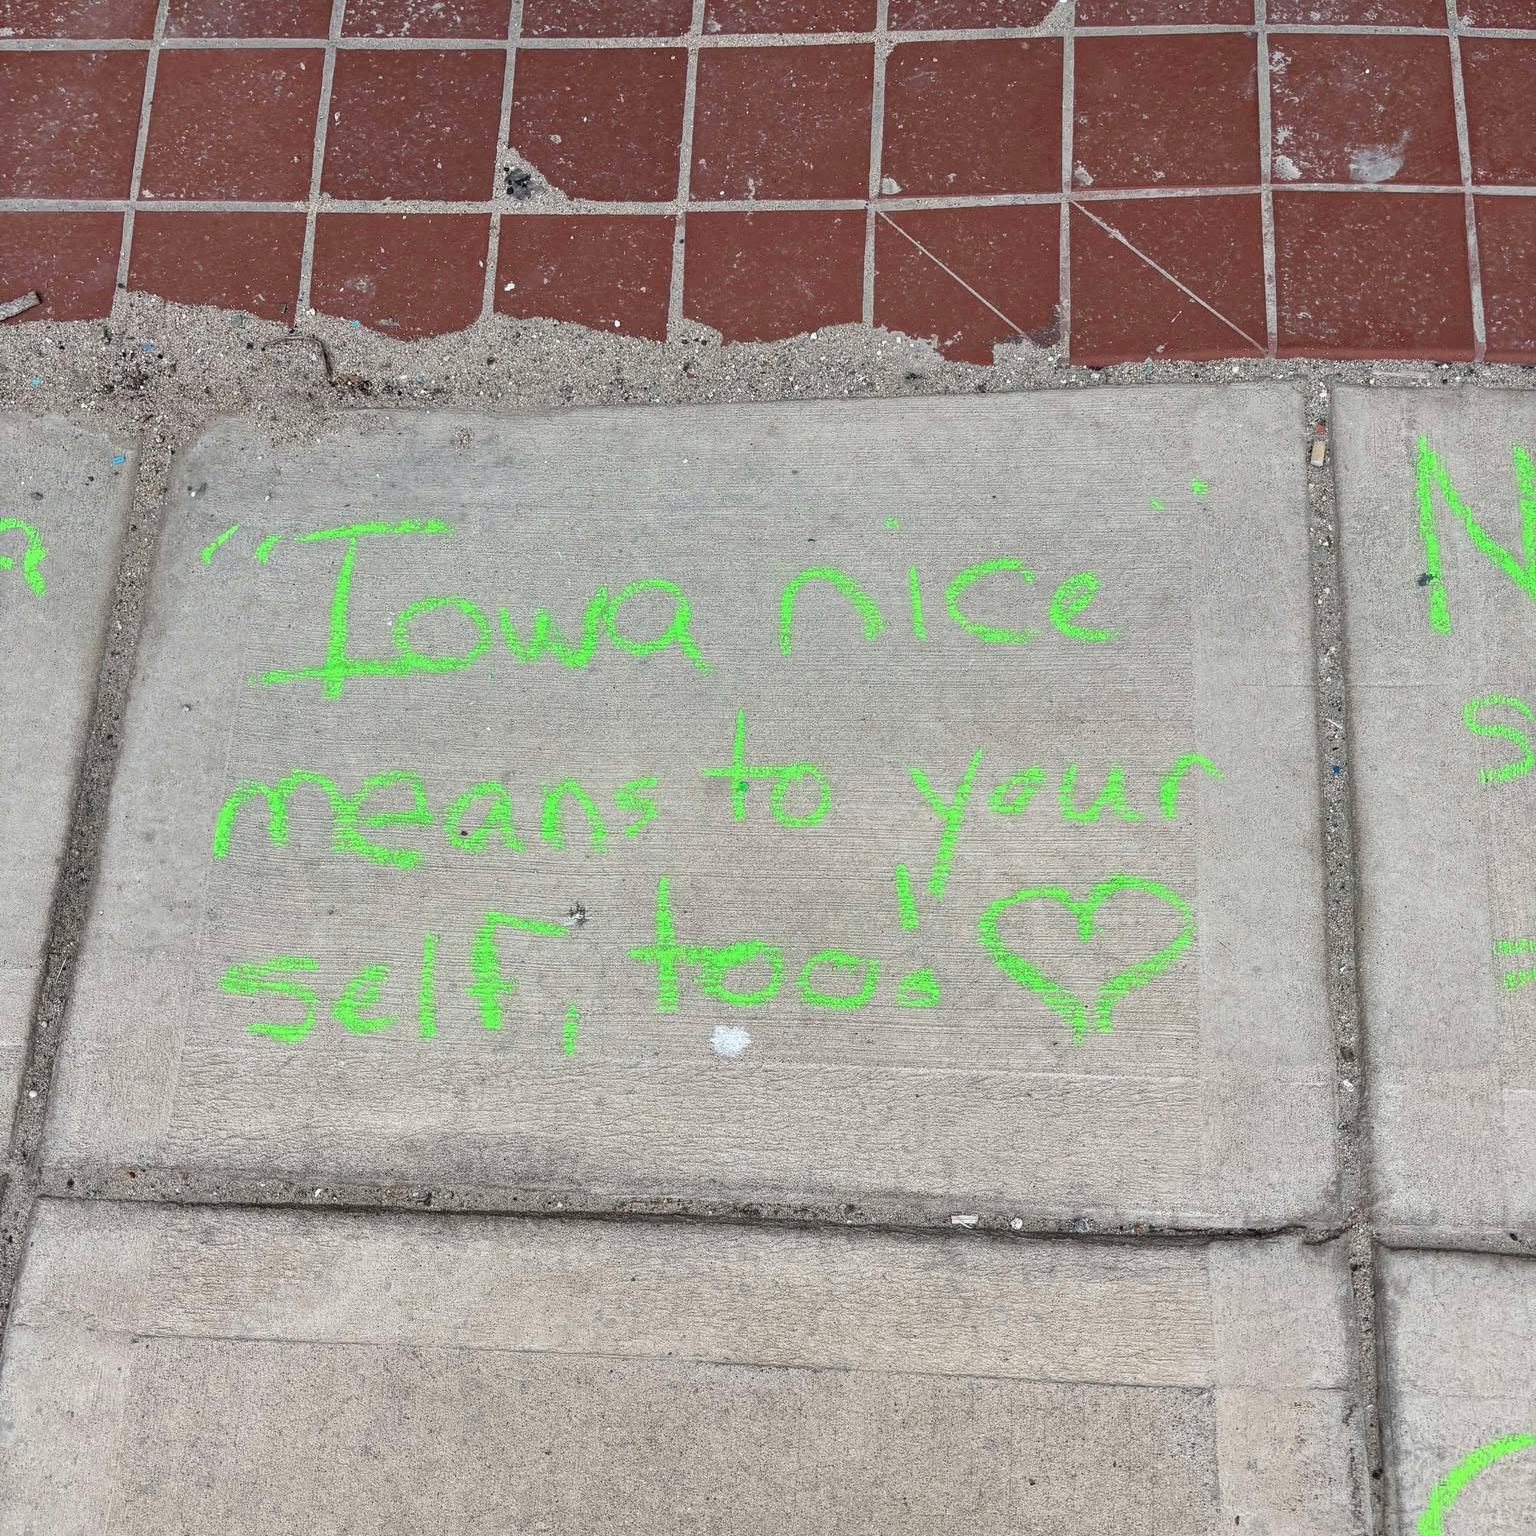 "Iowa nice"
means to your
self, too!